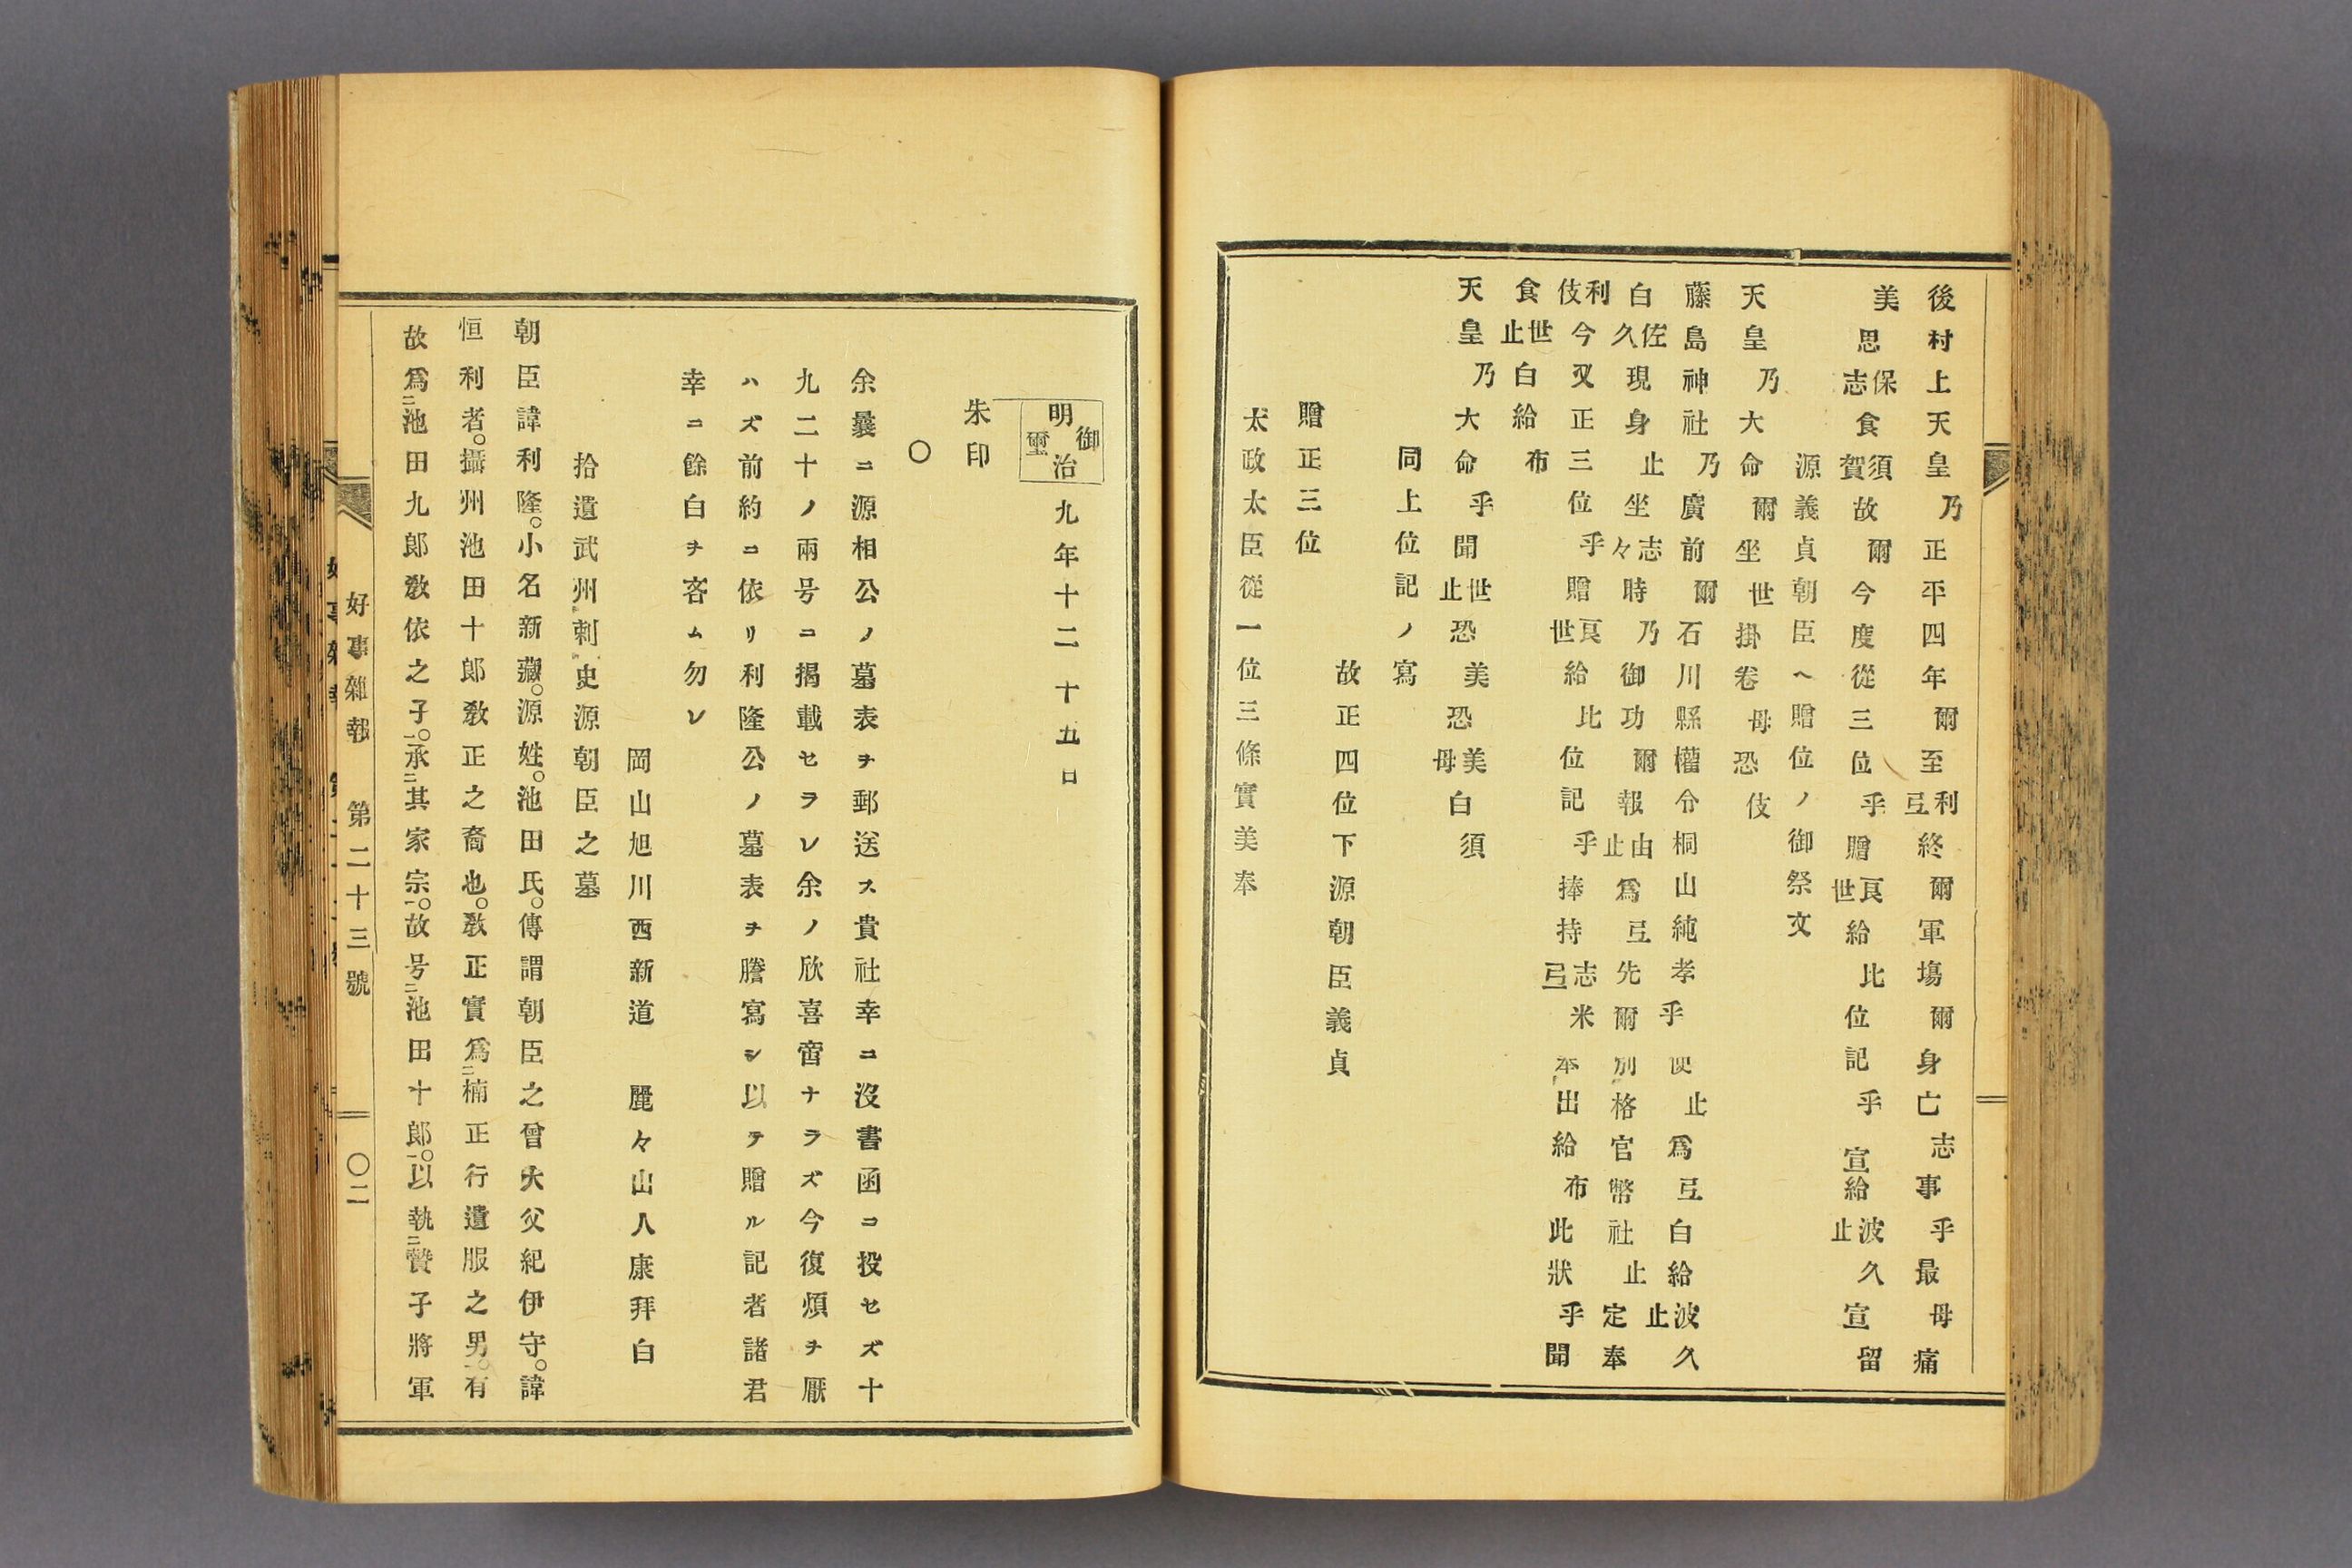 後村上天皇乃正平四年爾至利弖終爾軍塲爾身亡志事乎最母痛
美思保志食須賀故爾今度從三位乎贈良世給比位記乎宣給波久止宣留
源義貞朝臣ヘ贈位ノ御祭文
天皇乃大命爾坐世掛卷母恐伎
藤島神社乃廣前爾石川縣權令桐山純孝乎使止爲弖白給波久止
白佐久現身止坐志々時乃御功爾報由止爲弖先爾別格官幣社止定奉
利伎今又正三位乎贈良世給比位記乎捧持志弖米奉出給布此狀乎聞
食世止白給布
天皇乃大命乎聞世止恐美恐美母白須
同上位記ノ寫
故正四位下源朝臣義貞
贈正三位
太政太臣從一位三條實美奉
明治九年十二十五日
御璽
朱印
〇
余曩ニ源相公ノ墓表ヲ郵送ス貴社幸ニ沒書函ニ投セズ十
九二十ノ兩号ニ揭載セラレ余ノ欣喜啻ナラズ今復煩ヲ厭
ハズ前約ニ依リ利隆公ノ墓表ヲ謄寫シ以テ贈ル記者諸君
幸ニ餘白ヲ吝ム勿レ
岡山旭川西新道　麗々山人康拜白
拾遺武州刺史源朝臣之墓
朝臣諱利隆。小名新藏。源姓。池田氏。傳謂朝臣之曾大父紀伊守。諱
恒利者。攝州池田十郎敎正之裔也。敎正實爲二楠正行遺服之男一。有
故爲二池田九郎敎依之子一。承二其家宗一。故号二池田十郎一。以執二贄子將軍
好事雜報　第二十三號　〇二